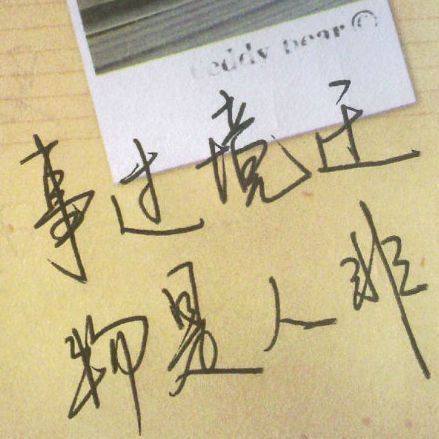 teddy bear©
事过境迁
物是人非